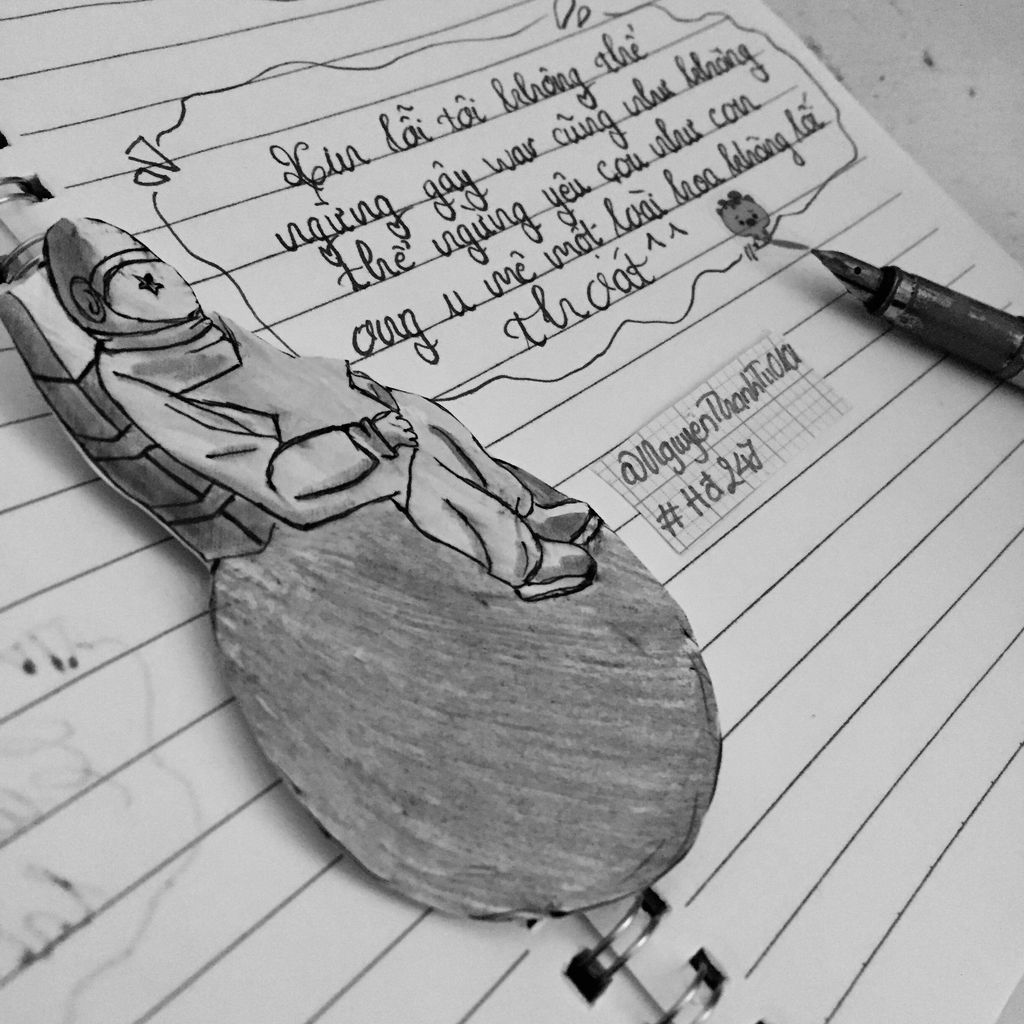 Xin lỗi tôi không thể
ngừng gây war cũng như không
thể ngừng yêu cou như con
ong u mê một loài hoa không lối
th oát ^^
@NguyễnThanhTuOkla
# Hđ 247